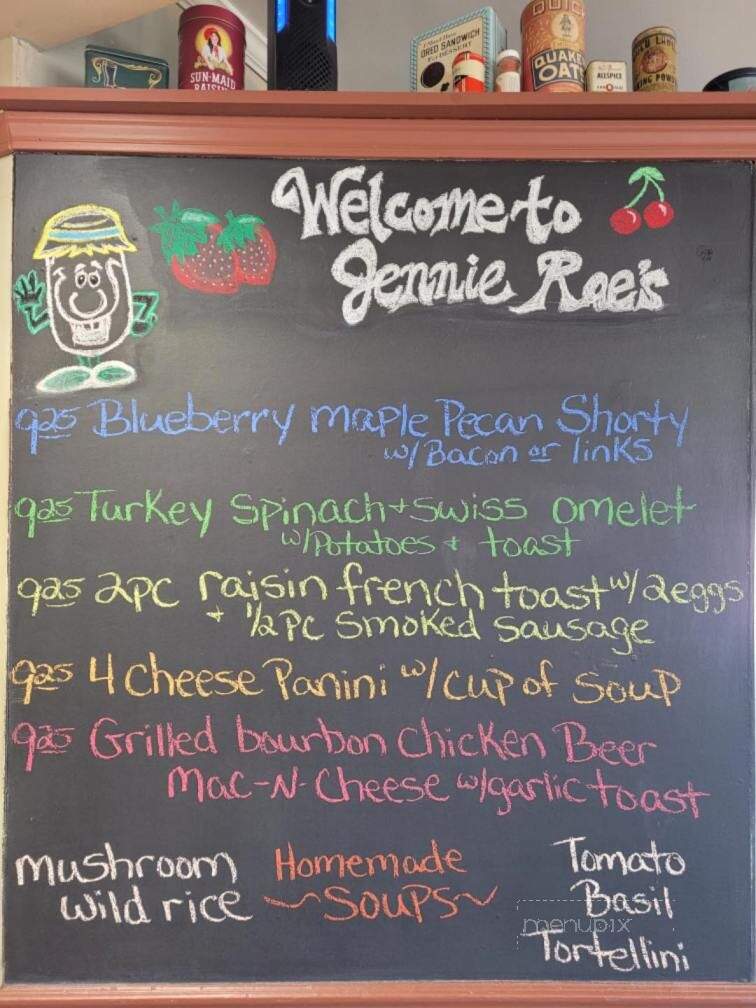 SUN-MAID
RAISINS
OREO SANDWICH
For DESSERT
QUICK
QUAKER
OATS
ALLSPICE
Welcome to
Jennie Rae's
925 Blueberry maple Pecan Shorty
w/ Bacon or links
925 Turkey Spinach + Swiss omelet
w/Potatoes + toast
925 2pc raisin french toast w/ 2eggs
+ 1/2 Pc Smoked Sausage
925 4 Cheese Panini w/ cup of Soup
925 Grilled bourbon Chicken Beer
Mac-N-Cheese w/garlic toast
Mushroom
wild rice
Homemade
~Soups~
Tomato
Basil
Tortellini
menupix